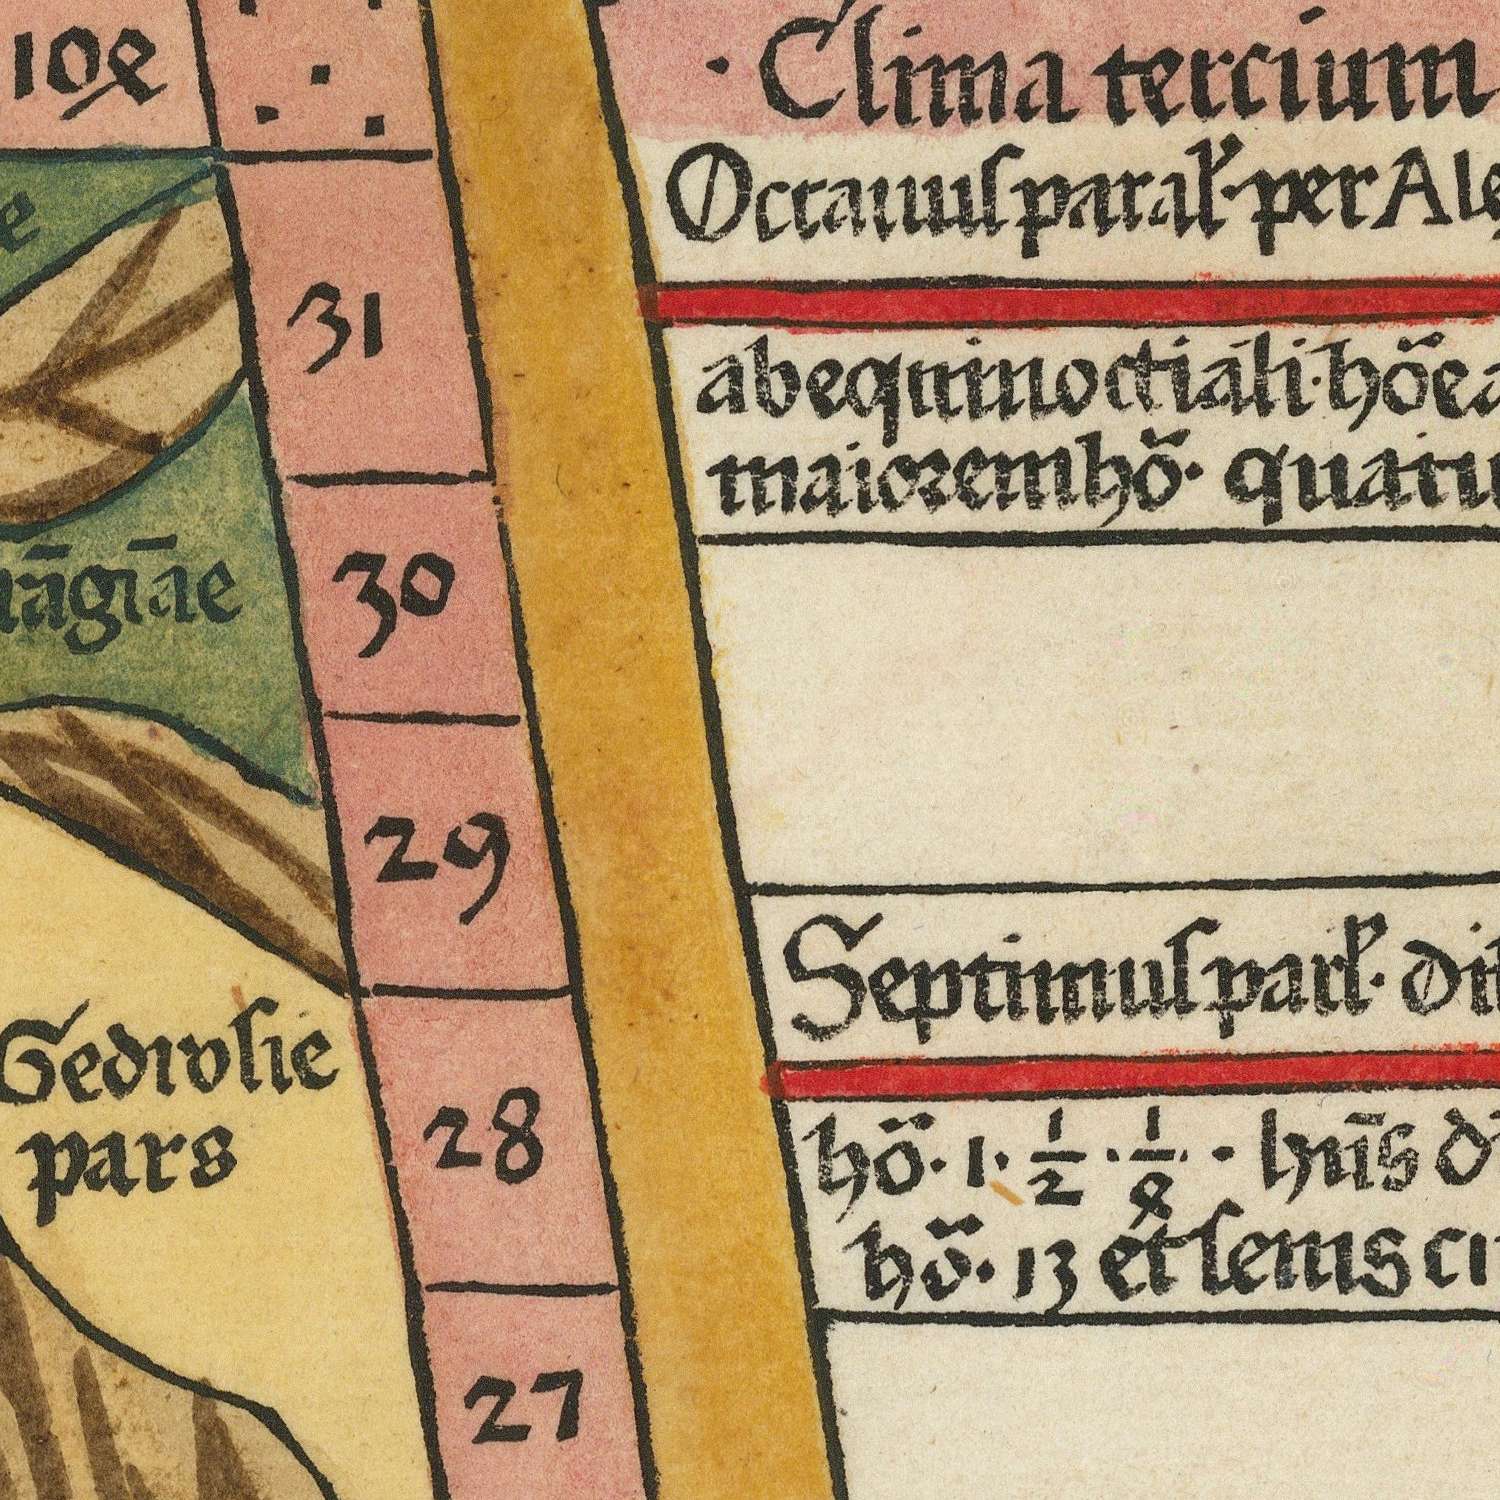 10e
e
31
30
29
28
27
Gedrosie
pars
· Clima tercium
Octauus paral· per Ale
ab equinoctiali· hōe a
maiorem hō· quatu
Septimus parl· dis
hō· 1· 1/2 · 1/8 · hn̄s d
hō· 13 et semis ci